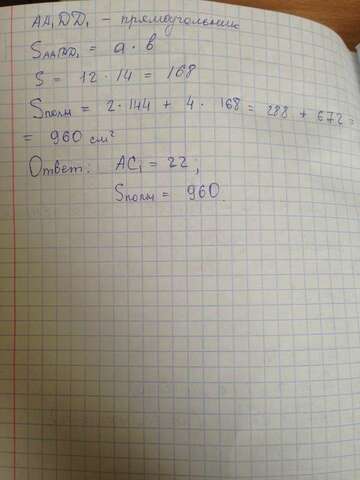 AA₁DD₁ - прямоугольник
SAA₁DD₁ = a · b
S = 12 · 14 = 168
Sполн = 2 · 144 + 4 · 168 = 288 + 672 =
= 960 см²
Ответ: AC₁ = 22;
Sполн = 960.